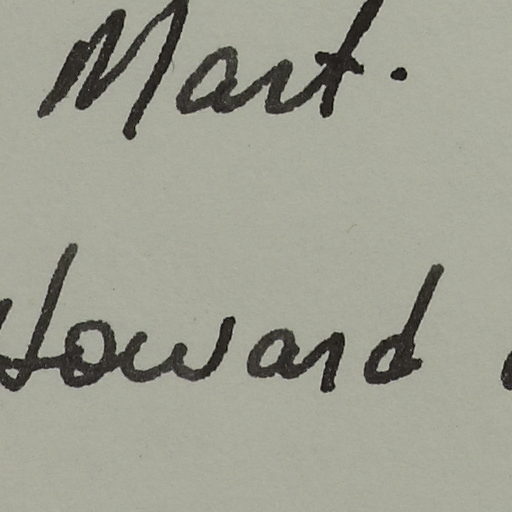 Mart.
Howard